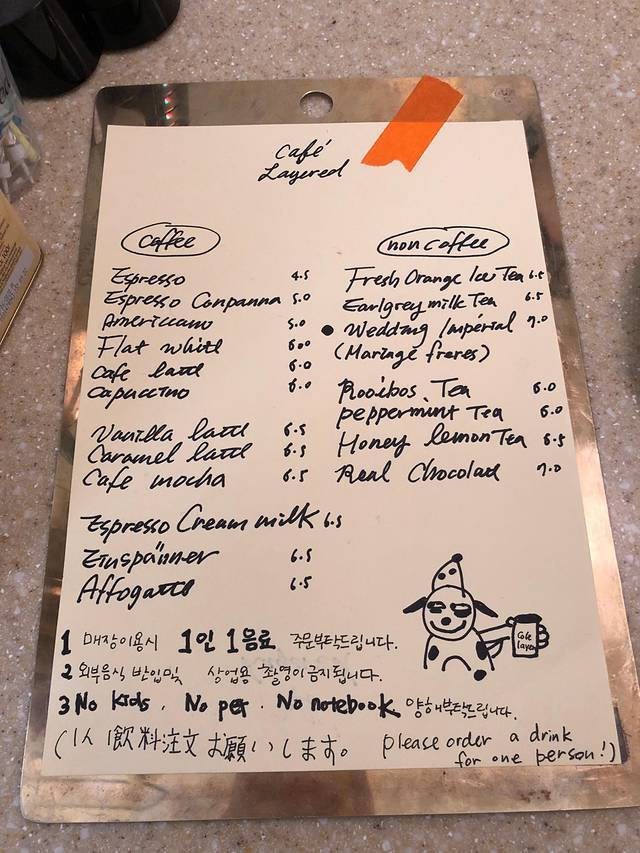 Café
Layered
coffee
Espresso 4.5
Espresso Conpanna 5.0
Americcano 5.0
Flat white 6.0
Cafe latte 6.0
Capuccino 6.0
Vanilla latte 6.5
Caramel latte 6.5
Cafe mocha 6.5
Espresso Cream milk 6.5
Einspänner 6.5
Affogatto 6.5
non coffee
Fresh Orange Ice Tea 6.5
Earlgrey milk Tea 6.5
• Wedding Impérial 7.0
(Mariage freres)
Rooibos Tea 6.0
peppermint Tea 6.0
Honey lemon Tea 6.5
Real Chocolate 7.0
Cafe
Layered
1 매장이용시 1인 1음료 주문부탁드립니다.
2 외부음식 반입및 상업용 촬영이 금지됩니다.
3 No kids. No pet. No notebook 양해부탁드립니다.
(1人 1飲料注文お願いします。 please order a drink
for one person!)